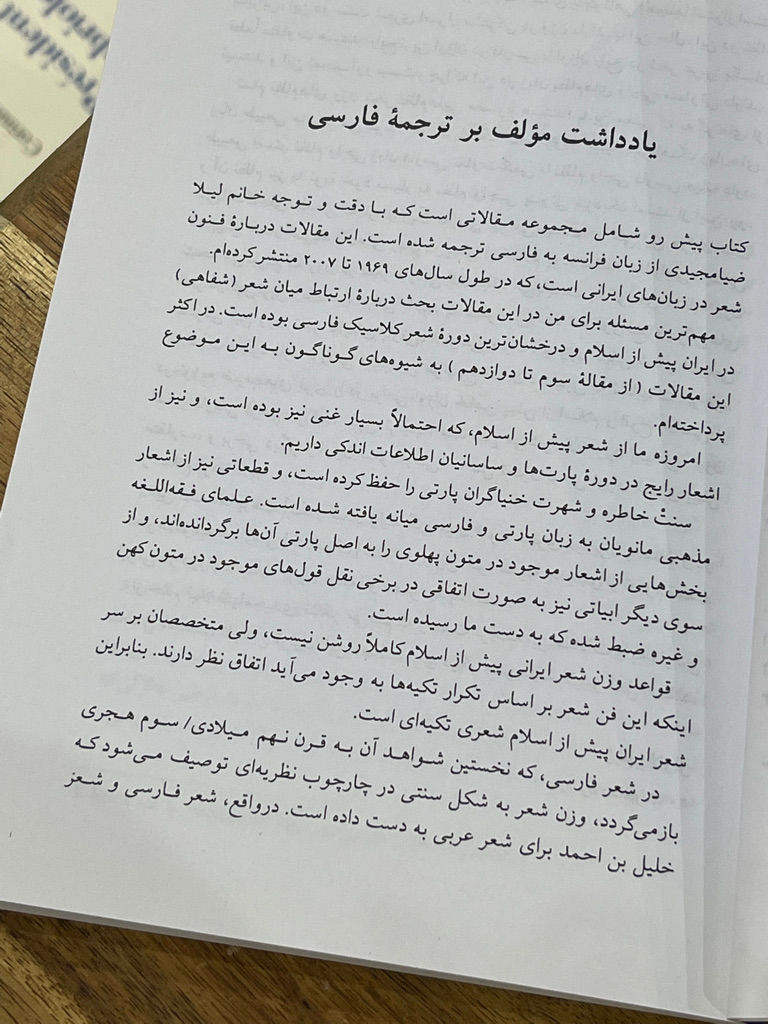 یادداشت مؤلف بر ترجمهٔ فارسی
کتاب پیش رو شامل مجموعه مقالاتی است که با دقت و توجه خانم لیلا
ضیامجیدی از زبان فرانسه به فارسی ترجمه شده است. این مقالات دربارهٔ فنون
شعر در زبان‌های ایرانی است، که در طول سال‌های ۱۹۶۹ تا ۲۰۰۷ منتشر کرده‌ام.
مهم‌ترین مسئله برای من در این مقالات بحث دربارهٔ ارتباط میان شعر (شفاهی)
در ایران پیش از اسلام و درخشان‌ترین دورهٔ شعر کلاسیک فارسی بوده است. در اکثر
این مقالات ( از مقالهٔ سوم تا دوازدهم ) به شیوه‌های گوناگون به این موضوع
پرداخته‌ام.
امروزه ما از شعر پیش از اسلام، که احتمالاً بسیار غنی نیز بوده است، و نیز از
اشعار رایج در دورهٔ پارت‌ها و ساسانیان اطلاعات اندکی داریم.
سنتْ خاطره و شهرت خنیاگران پارتی را حفظ کرده است، و قطعاتی نیز از اشعار
مذهبی مانویان به زبان پارتی و فارسی میانه یافته شده است. علمای فقه‌اللغه
بخش‌هایی از اشعار موجود در متون پهلوی را به اصل پارتی آن‌ها برگردانده‌اند، و از
سوی دیگر ابیاتی نیز به صورت اتفاقی در برخی نقل قول‌های موجود در متون کهن
و غیره ضبط شده که به دست ما رسیده است.
قواعد وزن شعر ایرانی پیش از اسلام کاملاً روشن نیست، ولی متخصصان بر سر
اینکه این فن شعر بر اساس تکرار تکیه‌ها به وجود می‌آید اتفاق نظر دارند. بنابراین
شعر ایران پیش از اسلام شعری تکیه‌ای است.
در شعر فارسی، که نخستین شواهد آن به قرن نهم میلادی/ سوم هجری
بازمی‌گردد، وزن شعر به شکل سنتی در چارچوب نظریه‌ای توصیف می‌شود که
خلیل بن احمد برای شعر عربی به دست داده است. درواقع، شعر فارسی و شعز